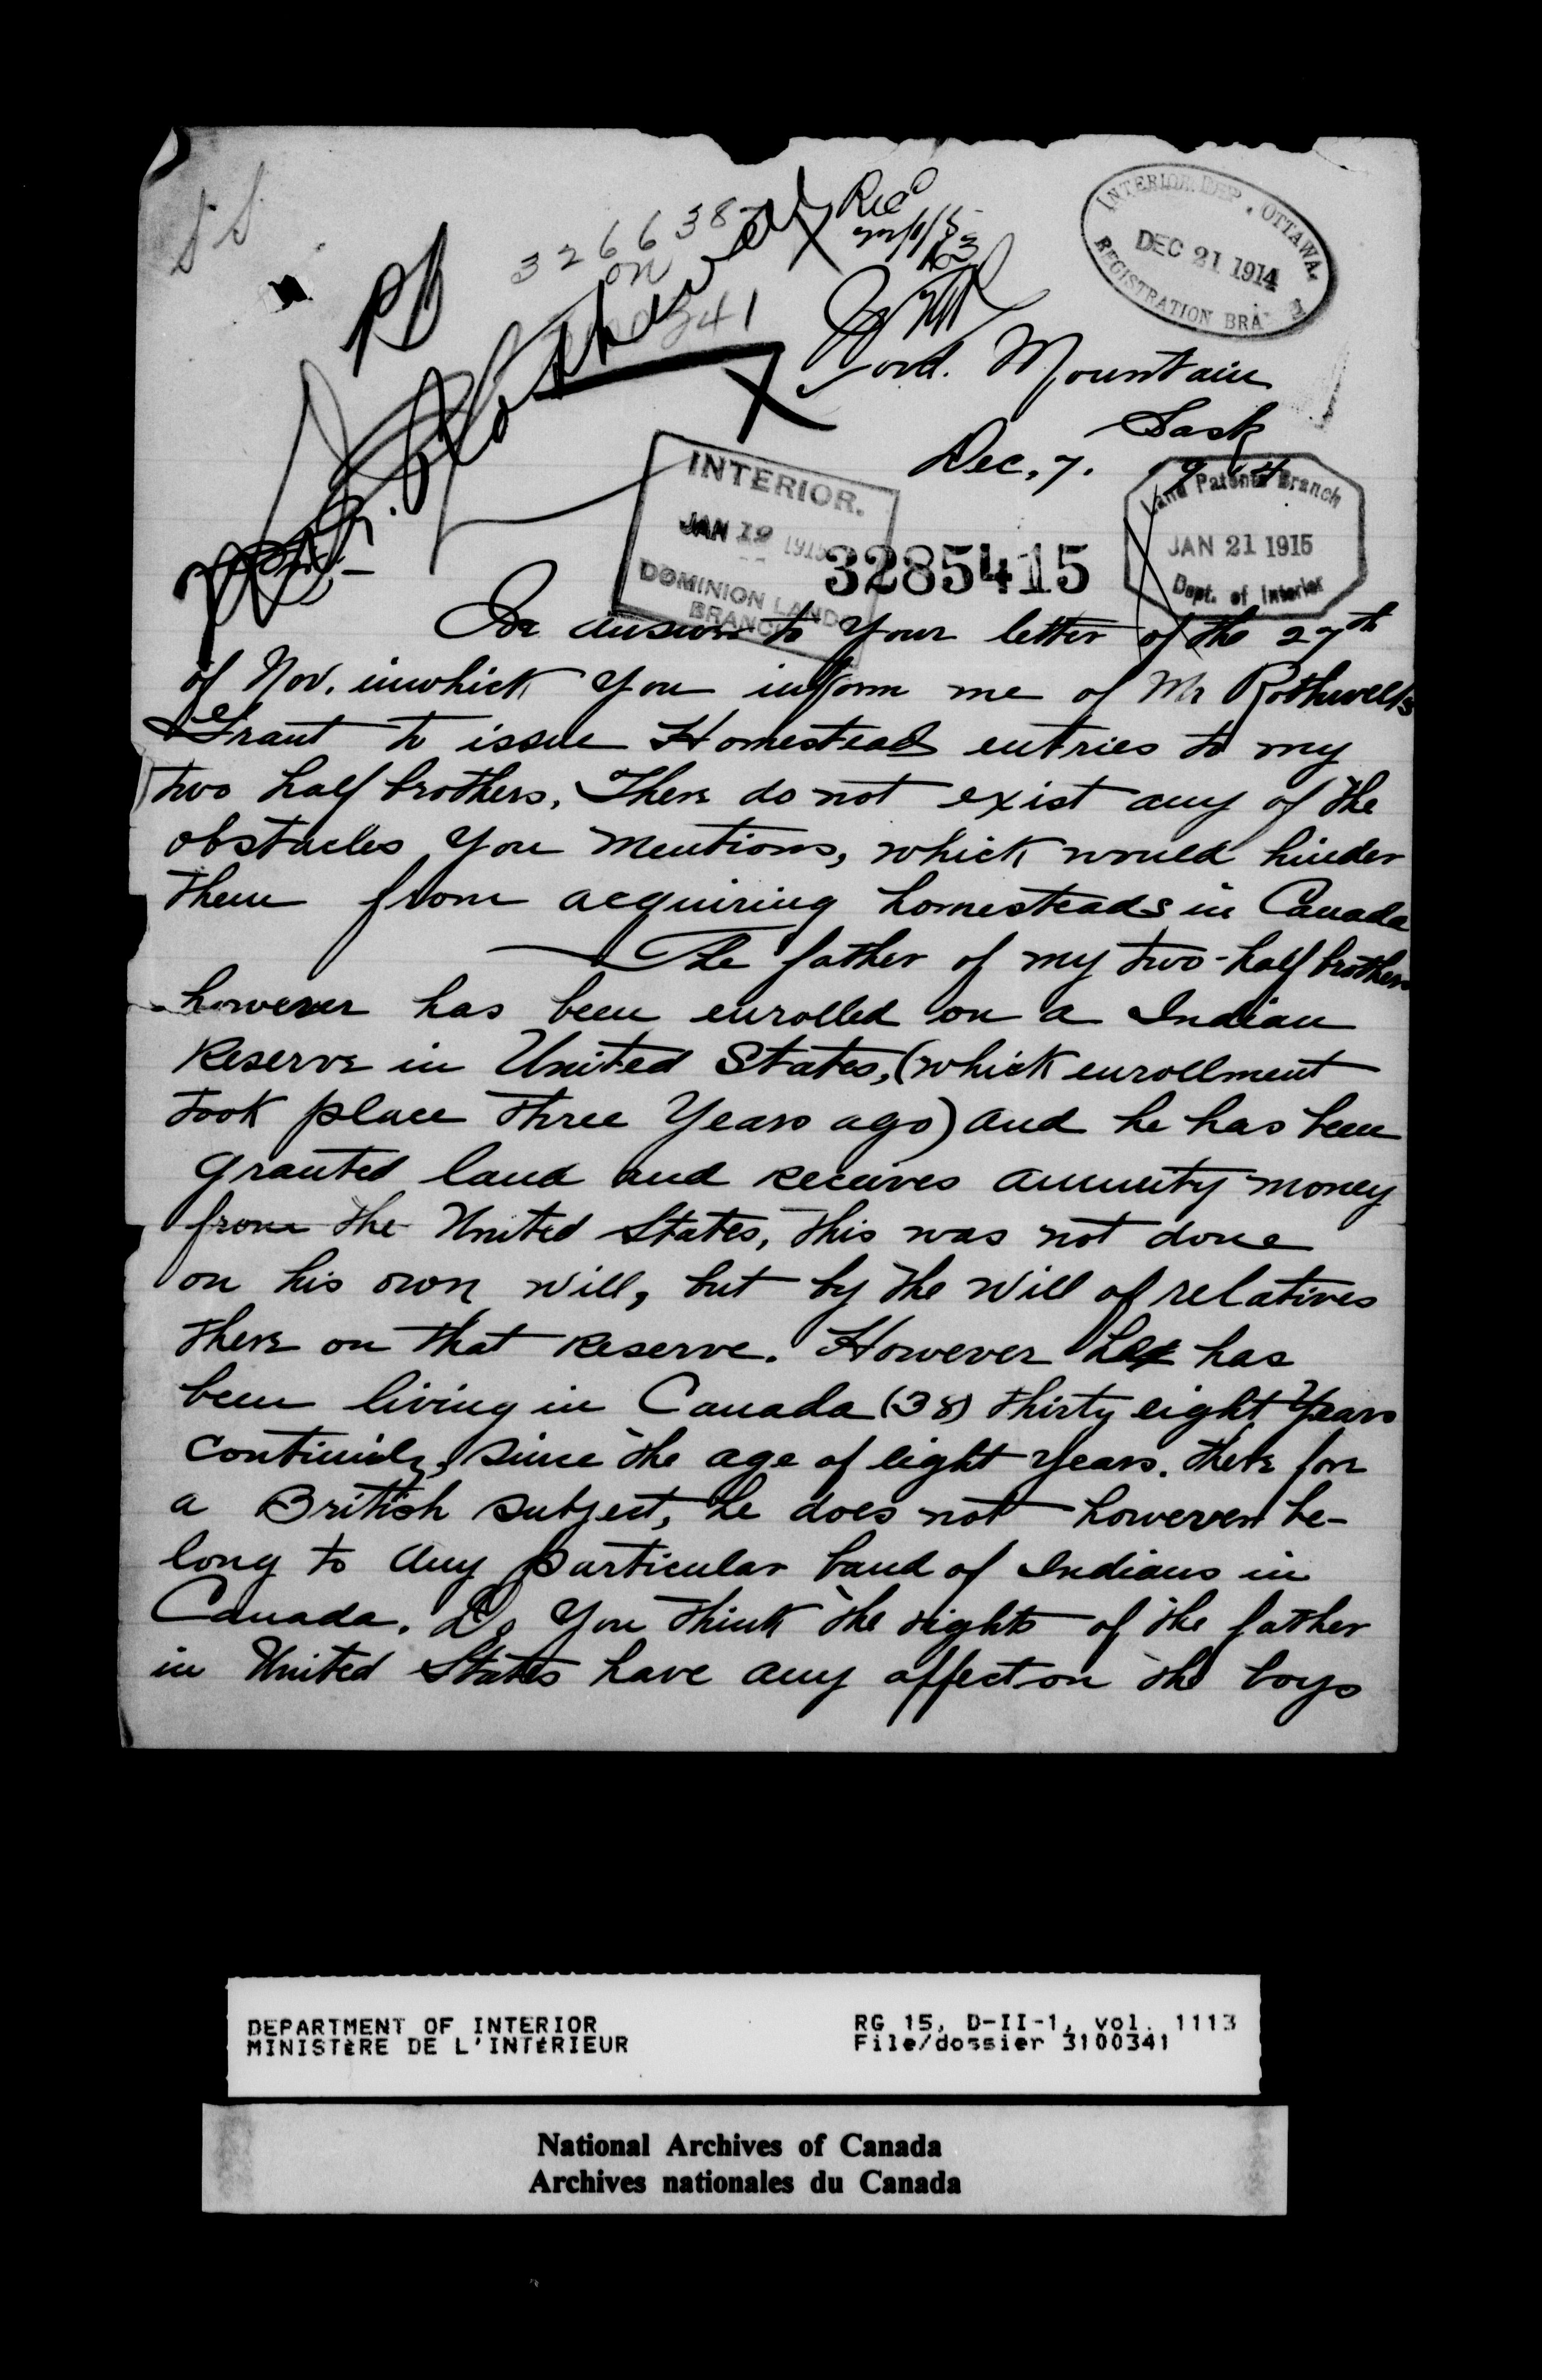 SS
326638
on
341
PB
Rec'd
INTERIOR DEP. OTTAWA
DEC 21 1914
REGISTRATION BRA
Wood. Mountain
Sask
Dec, 7. 1914
INTERIOR.
JAN 19 1915
DOMINION LANDS
BRANCH
3285415
Land Patents Branch
JAN 21 1915
Dept. of Interior
In answer to your letter of the 27th
of Nov. inwhick you inform me of Mr Rothwells
Grant to issue Homestead entries to my
two half brothers. There do not exist any of the
obstacles you mentions, whick would hinder
them from acquiring homesteads in Canada
The father of my two-half brothers
however has been enrolled on a Indian
Reserve in United States, (whick enrollment
took place three years ago) and he has been
granted land and receives annuity money
from the United States, this was not done
on his own will, but by the will of relatives
there on that reserve. However he has
been living in Canada (38) thirty eight years
continuly, since the age of eight years. there for
a British subject, he does not however be-
long to any particular band of Indians in
Canada. Do you think the rights of the father
in United States have any affect on the boys
DEPARTMENT OF INTERIOR
MINISTÈRE DE L'INTÉRIEUR
RG 15, D-II-1, vol. 1113
File/dossier 3100341
National Archives of Canada
Archives nationales du Canada